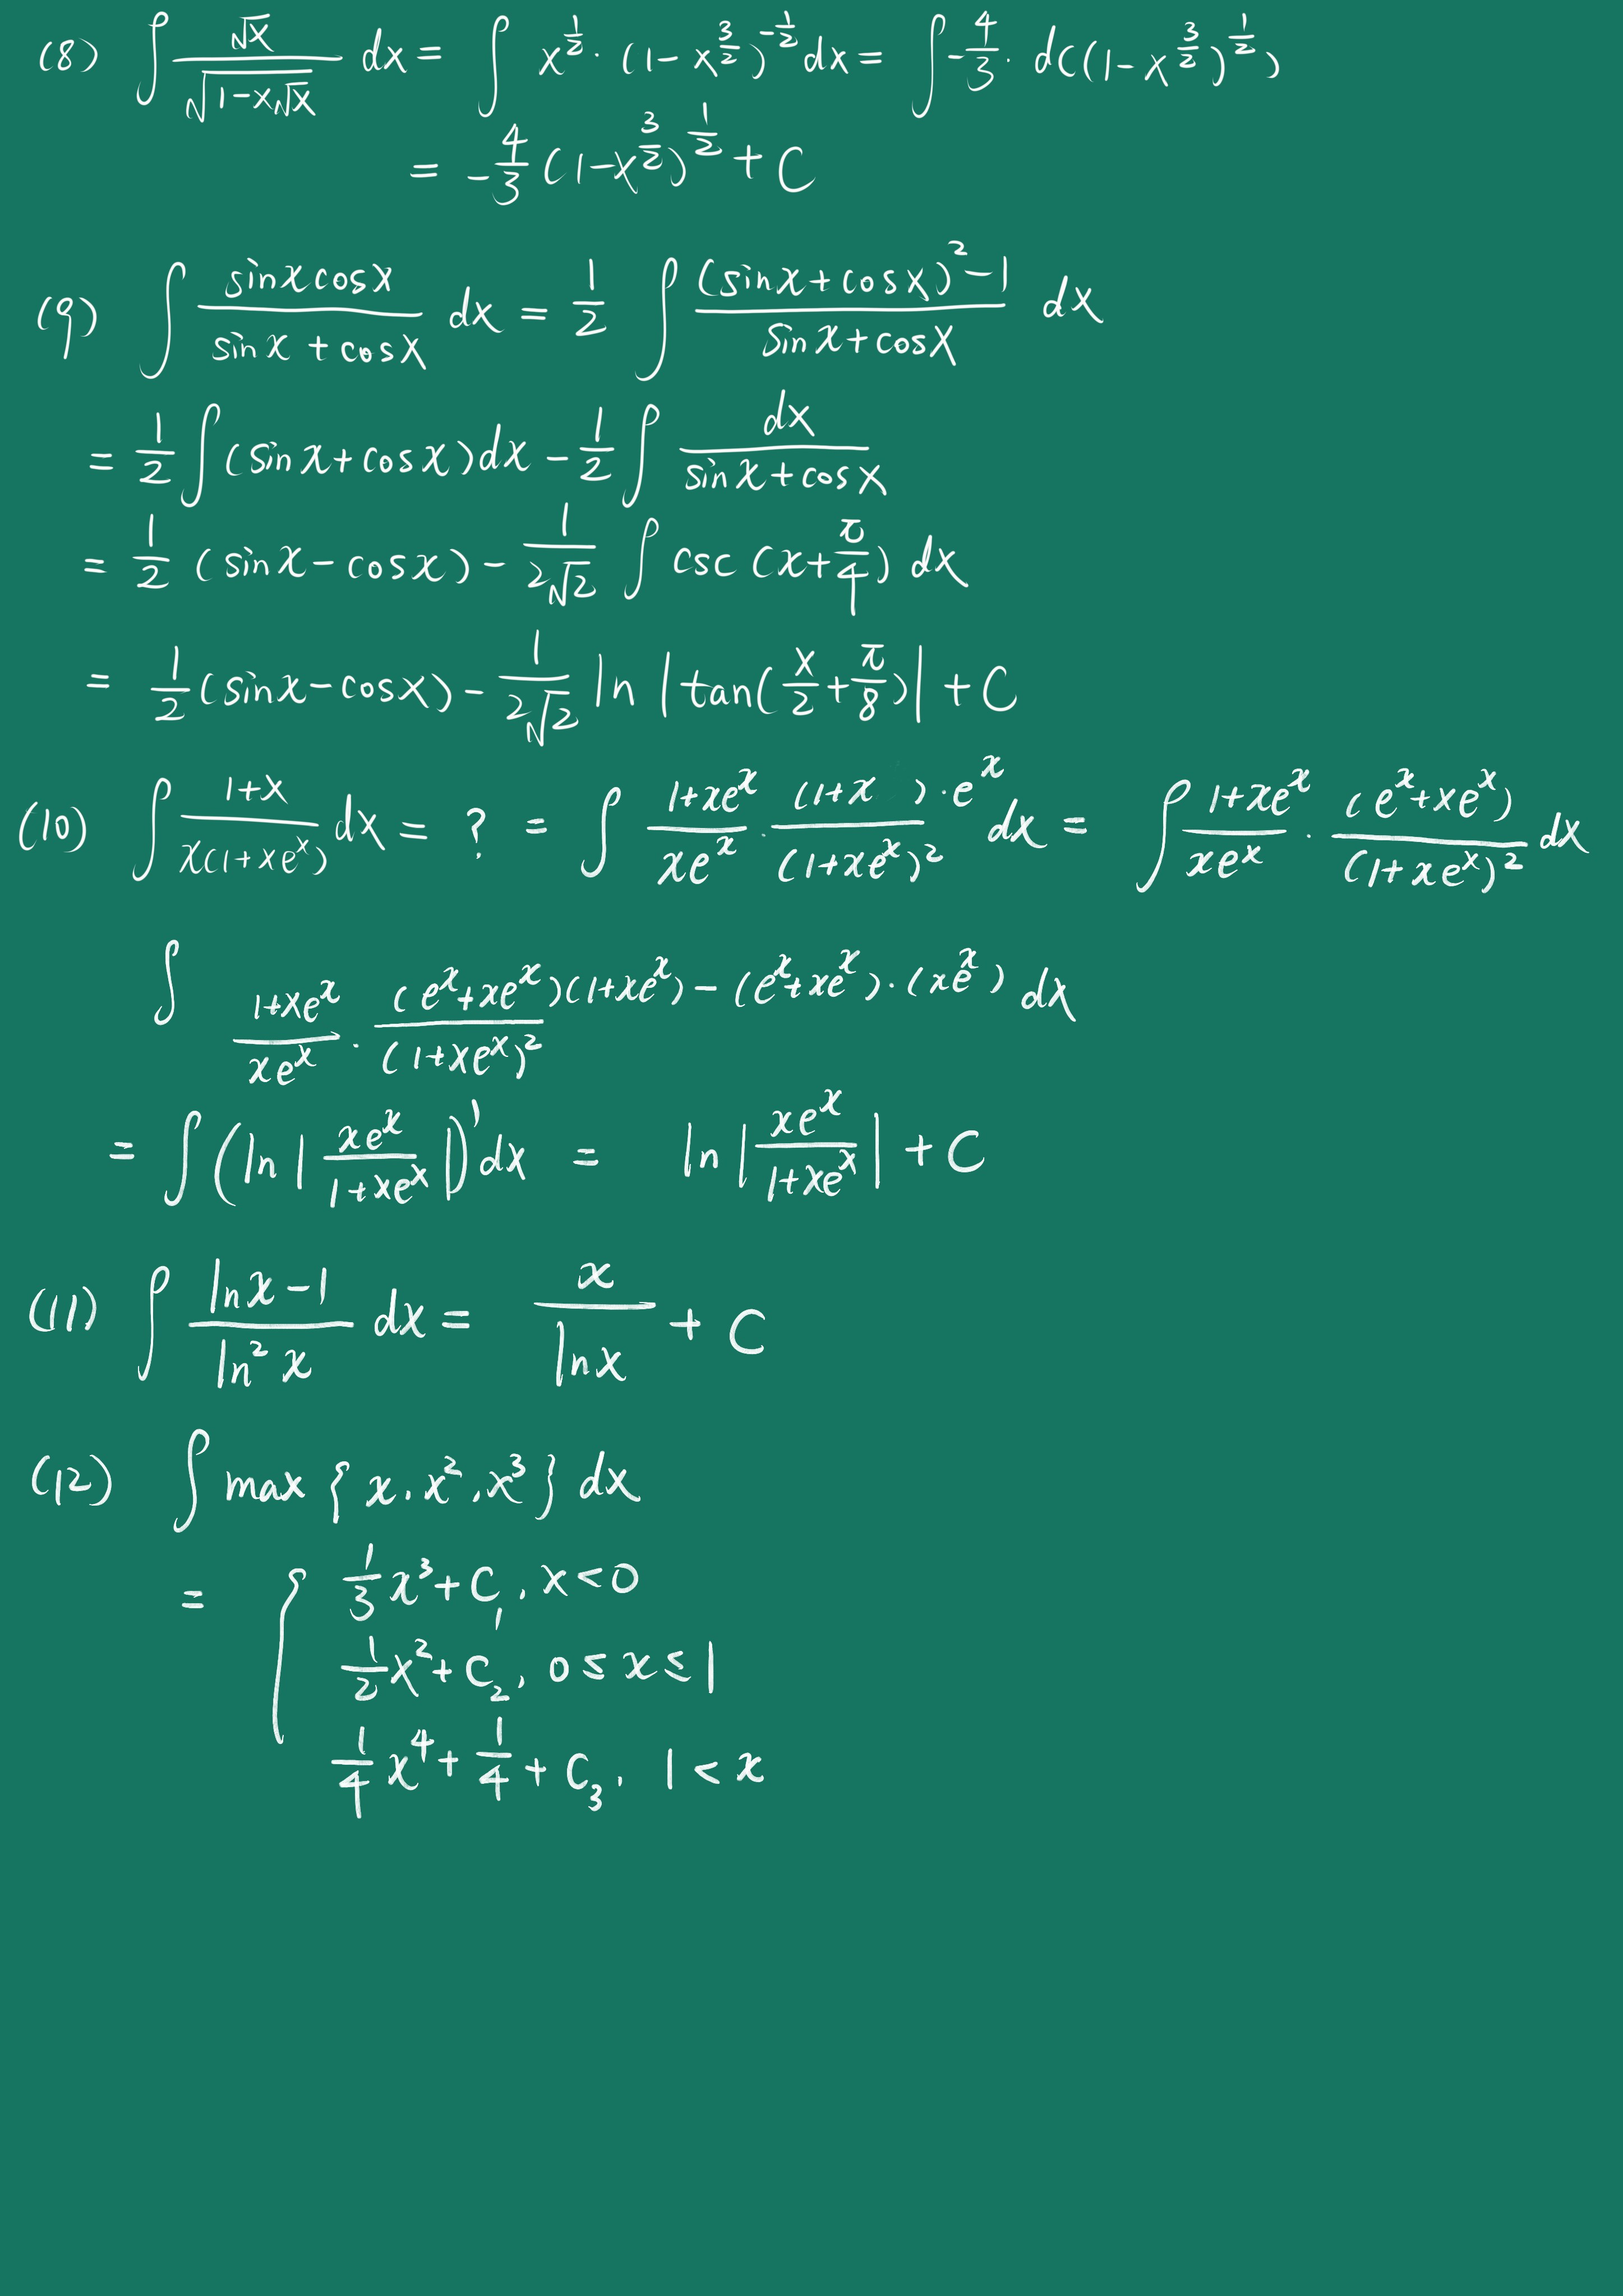 (8) ∫ √x / √(1-x√x) dx = ∫ x^{1/2} · (1-x^{3/2})^{-1/2} dx = ∫ -4/3 · d((1-x^{3/2})^{1/2})
= -4/3 (1-x^{3/2})^{1/2} + C
(9) ∫ (sinx cosx)/(sinx + cosx) dx = 1/2 ∫ ((sinx+cosx)^2 -1)/(sinx+cosx) dx
= 1/2 ∫ (sinx+cosx)dx - 1/2 ∫ dx/(sinx+cosx)
= 1/2 (sinx-cosx) - 1/(2√2) ∫ csc(x+π/4) dx
= 1/2 (sinx-cosx) - 1/(2√2) ln |tan(x/2+π/8)| + C
(10) ∫ (1+x)/(x(1+xe^x)) dx = ? = ∫ (1+xe^x)/(xe^x) · ((1+x)·e^x)/(1+xe^x)^2 dx = ∫ (1+xe^x)/(xe^x) · (e^x+xe^x)/(1+xe^x)^2 dx
∫ (1+xe^x)/(xe^x) · ((e^x+xe^x)(1+xe^x)-(e^x+xe^x)·(xe^x))/(1+xe^x)^2 dx
= ∫ (ln | xe^x/(1+xe^x) |)' dx = ln | xe^x/(1+xe^x) | + C
(11) ∫ (lnx-1)/(ln^2 x) dx = x/lnx + C
(12) ∫ max { x, x^2, x^3 } dx
= { 1/3 x^3 + C_1, x<0
1/2 x^2 + C_2, 0≤x≤1
1/4 x^4 + 1/4 + C_3, 1<x